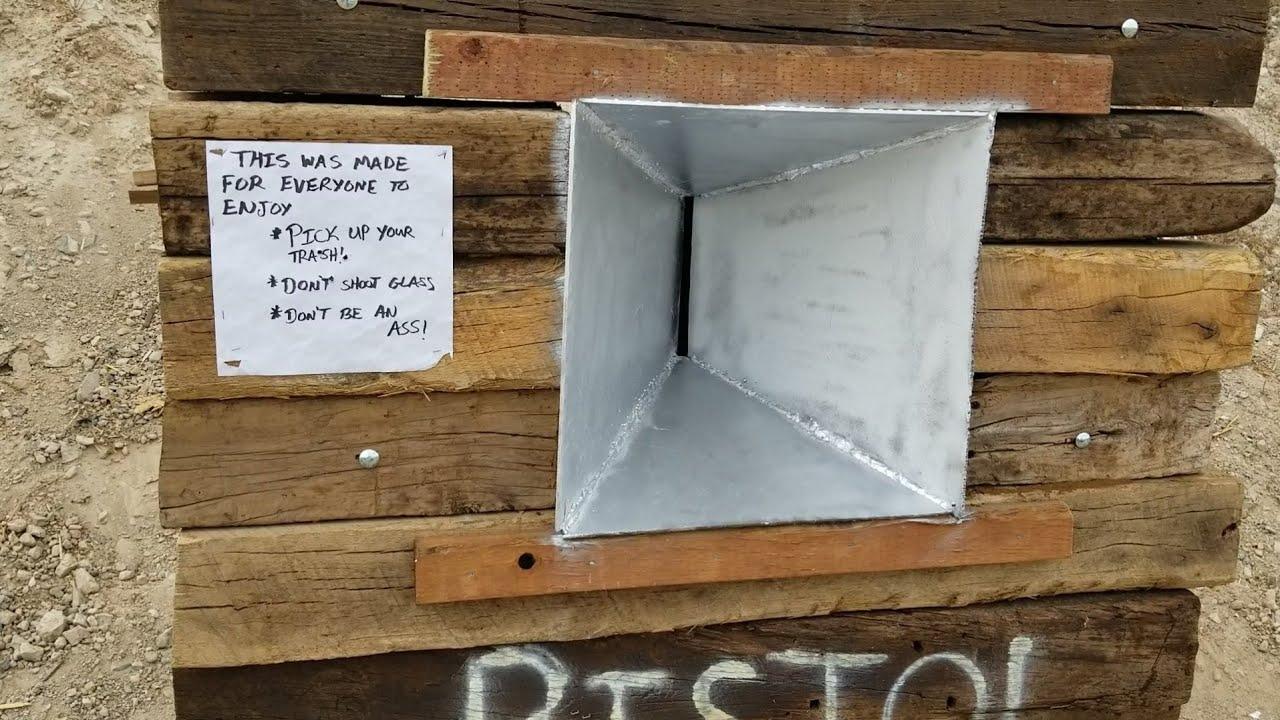 THIS WAS MADE
FOR EVERYONE TO
ENJOY
* PICK UP YOUR
TRASH!
* DON'T SHOOT GLASS
* DON'T BE AN
ASS!
PISTOL